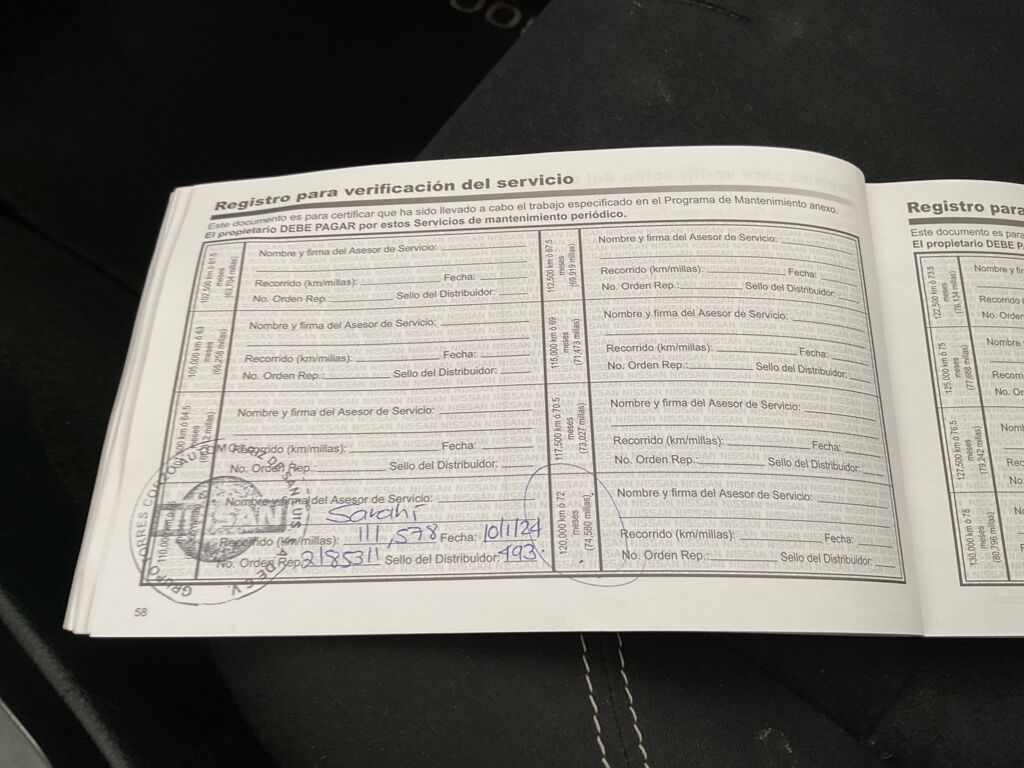 Registro para verificación del servicio
Este documento es para certificar que ha sido llevado a cabo el trabajo especificado en el Programa de Mantenimiento anexo.
El propietario DEBE PAGAR por estos Servicios de mantenimiento periódico.
102,500 km ó 61.5 meses (63,704 millas)
Nombre y firma del Asesor de Servicio:
Recorrido (km/millas): Fecha:
No. Orden Rep.: Sello del Distribuidor:
105,000 km ó 63 meses (65,258 millas)
Nombre y firma del Asesor de Servicio:
Recorrido (km/millas): Fecha:
No. Orden Rep.: Sello del Distribuidor:
km ó 64.5 meses
Nombre y firma del Asesor de Servicio:
Recorrido (km/millas): Fecha:
No. Orden Rep.: Sello del Distribuidor:
110,000 km
Nombre y firma del Asesor de Servicio:
Sarahí
Recorrido (km/millas): 111,578 Fecha: 10/1/24
No. Orden Rep. 2185311 Sello del Distribuidor: 493.
112,500 km ó 67.5 meses (69,919 millas)
Nombre y firma del Asesor de Servicio:
Recorrido (km/millas): Fecha:
No. Orden Rep.: Sello del Distribuidor:
115,000 km ó 69 meses (71,473 millas)
Nombre y firma del Asesor de Servicio:
Recorrido (km/millas): Fecha:
No. Orden Rep.: Sello del Distribuidor:
117,500 km ó 70.5 meses (73,027 millas)
Nombre y firma del Asesor de Servicio:
Recorrido (km/millas): Fecha:
No. Orden Rep.: Sello del Distribuidor:
120,000 km ó 72 meses (74,580 millas)
Nombre y firma del Asesor de Servicio:
Recorrido (km/millas): Fecha:
No. Orden Rep.: Sello del Distribuidor:
58
Registro para
Este documento es para
El propietario DEBE P
122,500 km ó 73.5 meses (76,134 millas)
Nombre y fir
Recorrido (
No. Orden
125,000 km ó 75 meses (77,688 millas)
Nombre
Recorri
No. Or
127,500 km ó 76.5 meses (79,242 millas)
Nomb
Rec
No.
130,000 km ó 78 meses (80,796 millas)
Nom
Rec
No.